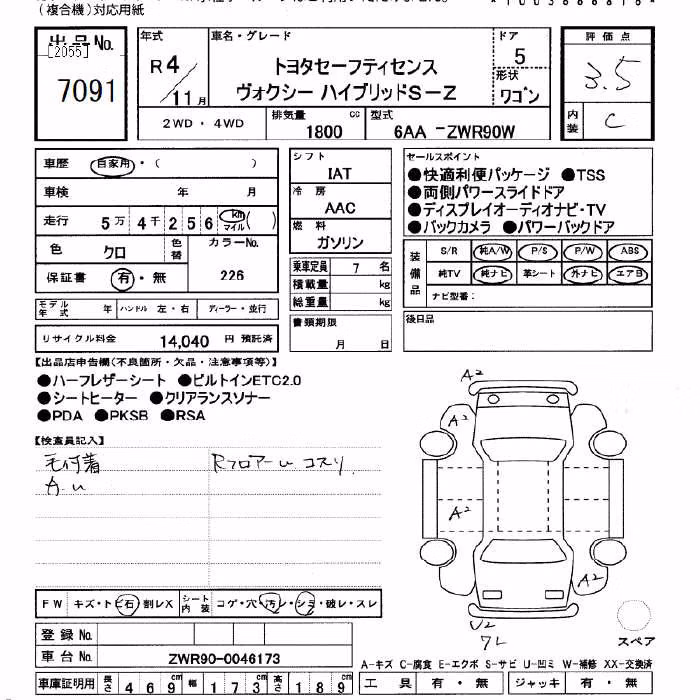 (複合機)対応用紙
出品No.
[2055]
7091
年式
R4/11月
車名・グレード
トヨタセーフティセンス
ヴォクシー ハイブリッドS−Z
ドア
5
形状
ワゴン
評価点
3.5
内装
C
2WD・4WD
排気量
1800 cc
型式
6AA −ZWR90W
車歴 自家用・( )
車検 年 月
走行 5万4千256 km マイル( )
色 クロ
色替
カラーNo.
226
保証書 有・無
モデル年式 年
ハンドル 左・右
ディーラー・並行
リサイクル料金 14,040 円 預託済
シフト
IAT
冷房
AAC
燃料
ガソリン
乗車定員 7 名
積載量 kg
総重量 kg
書類期限
月 日
セールスポイント
●快適利便パッケージ ●TSS
●両側パワースライドドア
●ディスプレイオーディオナビ・TV
●バックカメラ ●パワーバックドア
装備品
S/R 純A/W P/S P/W ABS
純TV 純ナビ 革シート 外ナビ エアB
ナビ型番:
後日品
【出品店申告欄(不良箇所・欠品・注意事項等)】
●ハーフレザーシート ●ビルトインETC2.0
●シートヒーター ●クリアランスソナー
●PDA ●PKSB ●RSA
【検査員記入】
毛付着
Rフロアーu コスリ
A2
A2
A2
A2
U2
スペア
FW キズ・トビ石 割レX
シート内装 コゲ・穴・汚レ・シミ・破レ・スレ
登録No.
車台No. ZWR90-0046173
A-キズ C-腐食 E-エクボ S-サビ U-凹ミ W-補修 XX-交換済
車庫証明用 長さ 469cm 幅 173cm 高さ 189cm
工具 有・無
ジャッキ 有・無